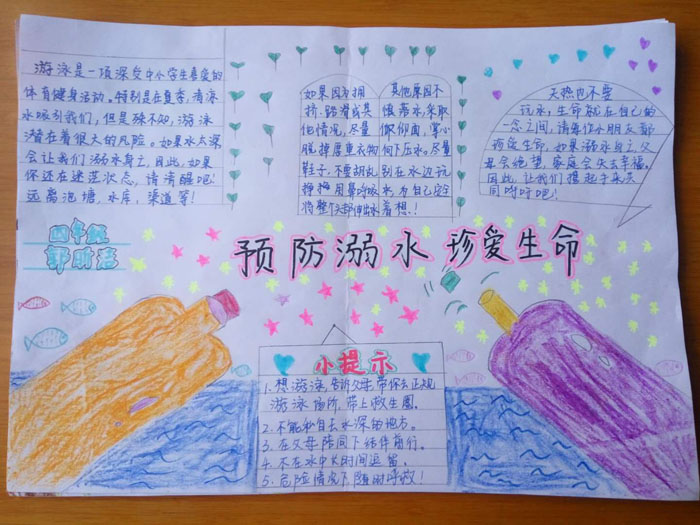 游泳是一项深受中小学生喜爱的
体育健身活动。特别是在夏季,清凉
水吸引我们,但是殊不知,游泳
潜在着很大的风险。如果水太深
会让我们溺水身亡,因此,如果
你还在迷茫状态,请清醒吧!
远离池塘,水库,渠道等!
如果因为拥
挤、踏滑或其
他情况,尽量
脱掉厚重衣物
鞋子,不要胡乱
挣扎,用鼻呼吸
将整个头部伸出水
其他原因不
慎落水,采取
仰卧面,掌心
向下压水。尽量
别在水边玩
水,为自己安全
着想!
天热也不要
玩水,生命就在自己的
一念之间,请每位小朋友都
珍爱生命,如果溺水身亡,父
母会绝望,家庭会失去幸福,
因此,让我们携起手来共
同呼吁吧!
四年级
预防溺水 珍爱生命
小提示
1.想游泳,告诉父母,带你去正规
游泳场所,带上救生圈。
2.不能私自去水深的地方。
3.在父母陪同下结伴前行。
4.不在水中长时间逗留。
5.危险情况下,随时呼救!